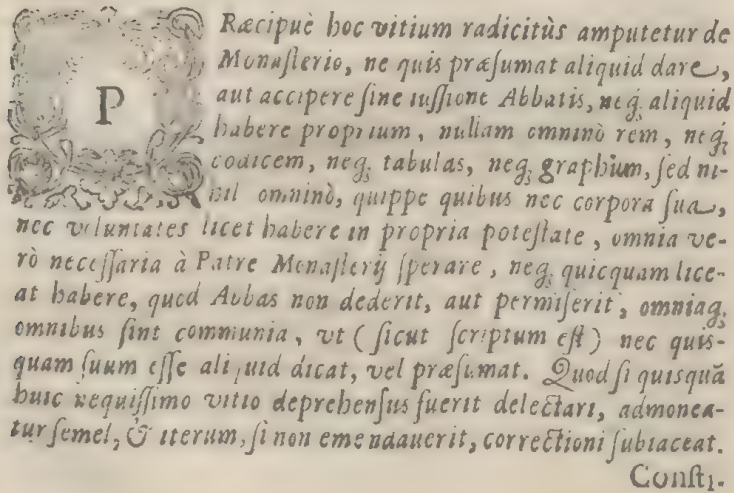 PRæcipuè hoc vitium radicitùs amputetur de
Monaſterio, ne quis præſumat aliquid dare,
aut accipere ſine iuſſione Abbatis, neq; aliquid
habere proprium, nullam omninò rem, neq;
codicem, neq; tabulas, neq; graphium, ſed ni-
hil omninò, quippe quibus nec corpora ſua,
nec voluntates licet habere in propria poteſtate, omnia ve-
rò neceſſaria à Patre Monaſterij ſperare, neq; quicquam lice-
at habere, quod Abbas non dederit, aut permiſerit, omniaq;
omnibus ſint communia, vt (ſicut ſcriptum eſt) nec quis-
quam ſuum eſſe aliquid dicat, vel præſumat. Quod ſi quisquã
huic nequiſſimo vitio deprehenſus fuerit delectari, admonea-
tur ſemel, & iterum, ſi non emendauerit, correctioni ſubiaceat.
Conſti-